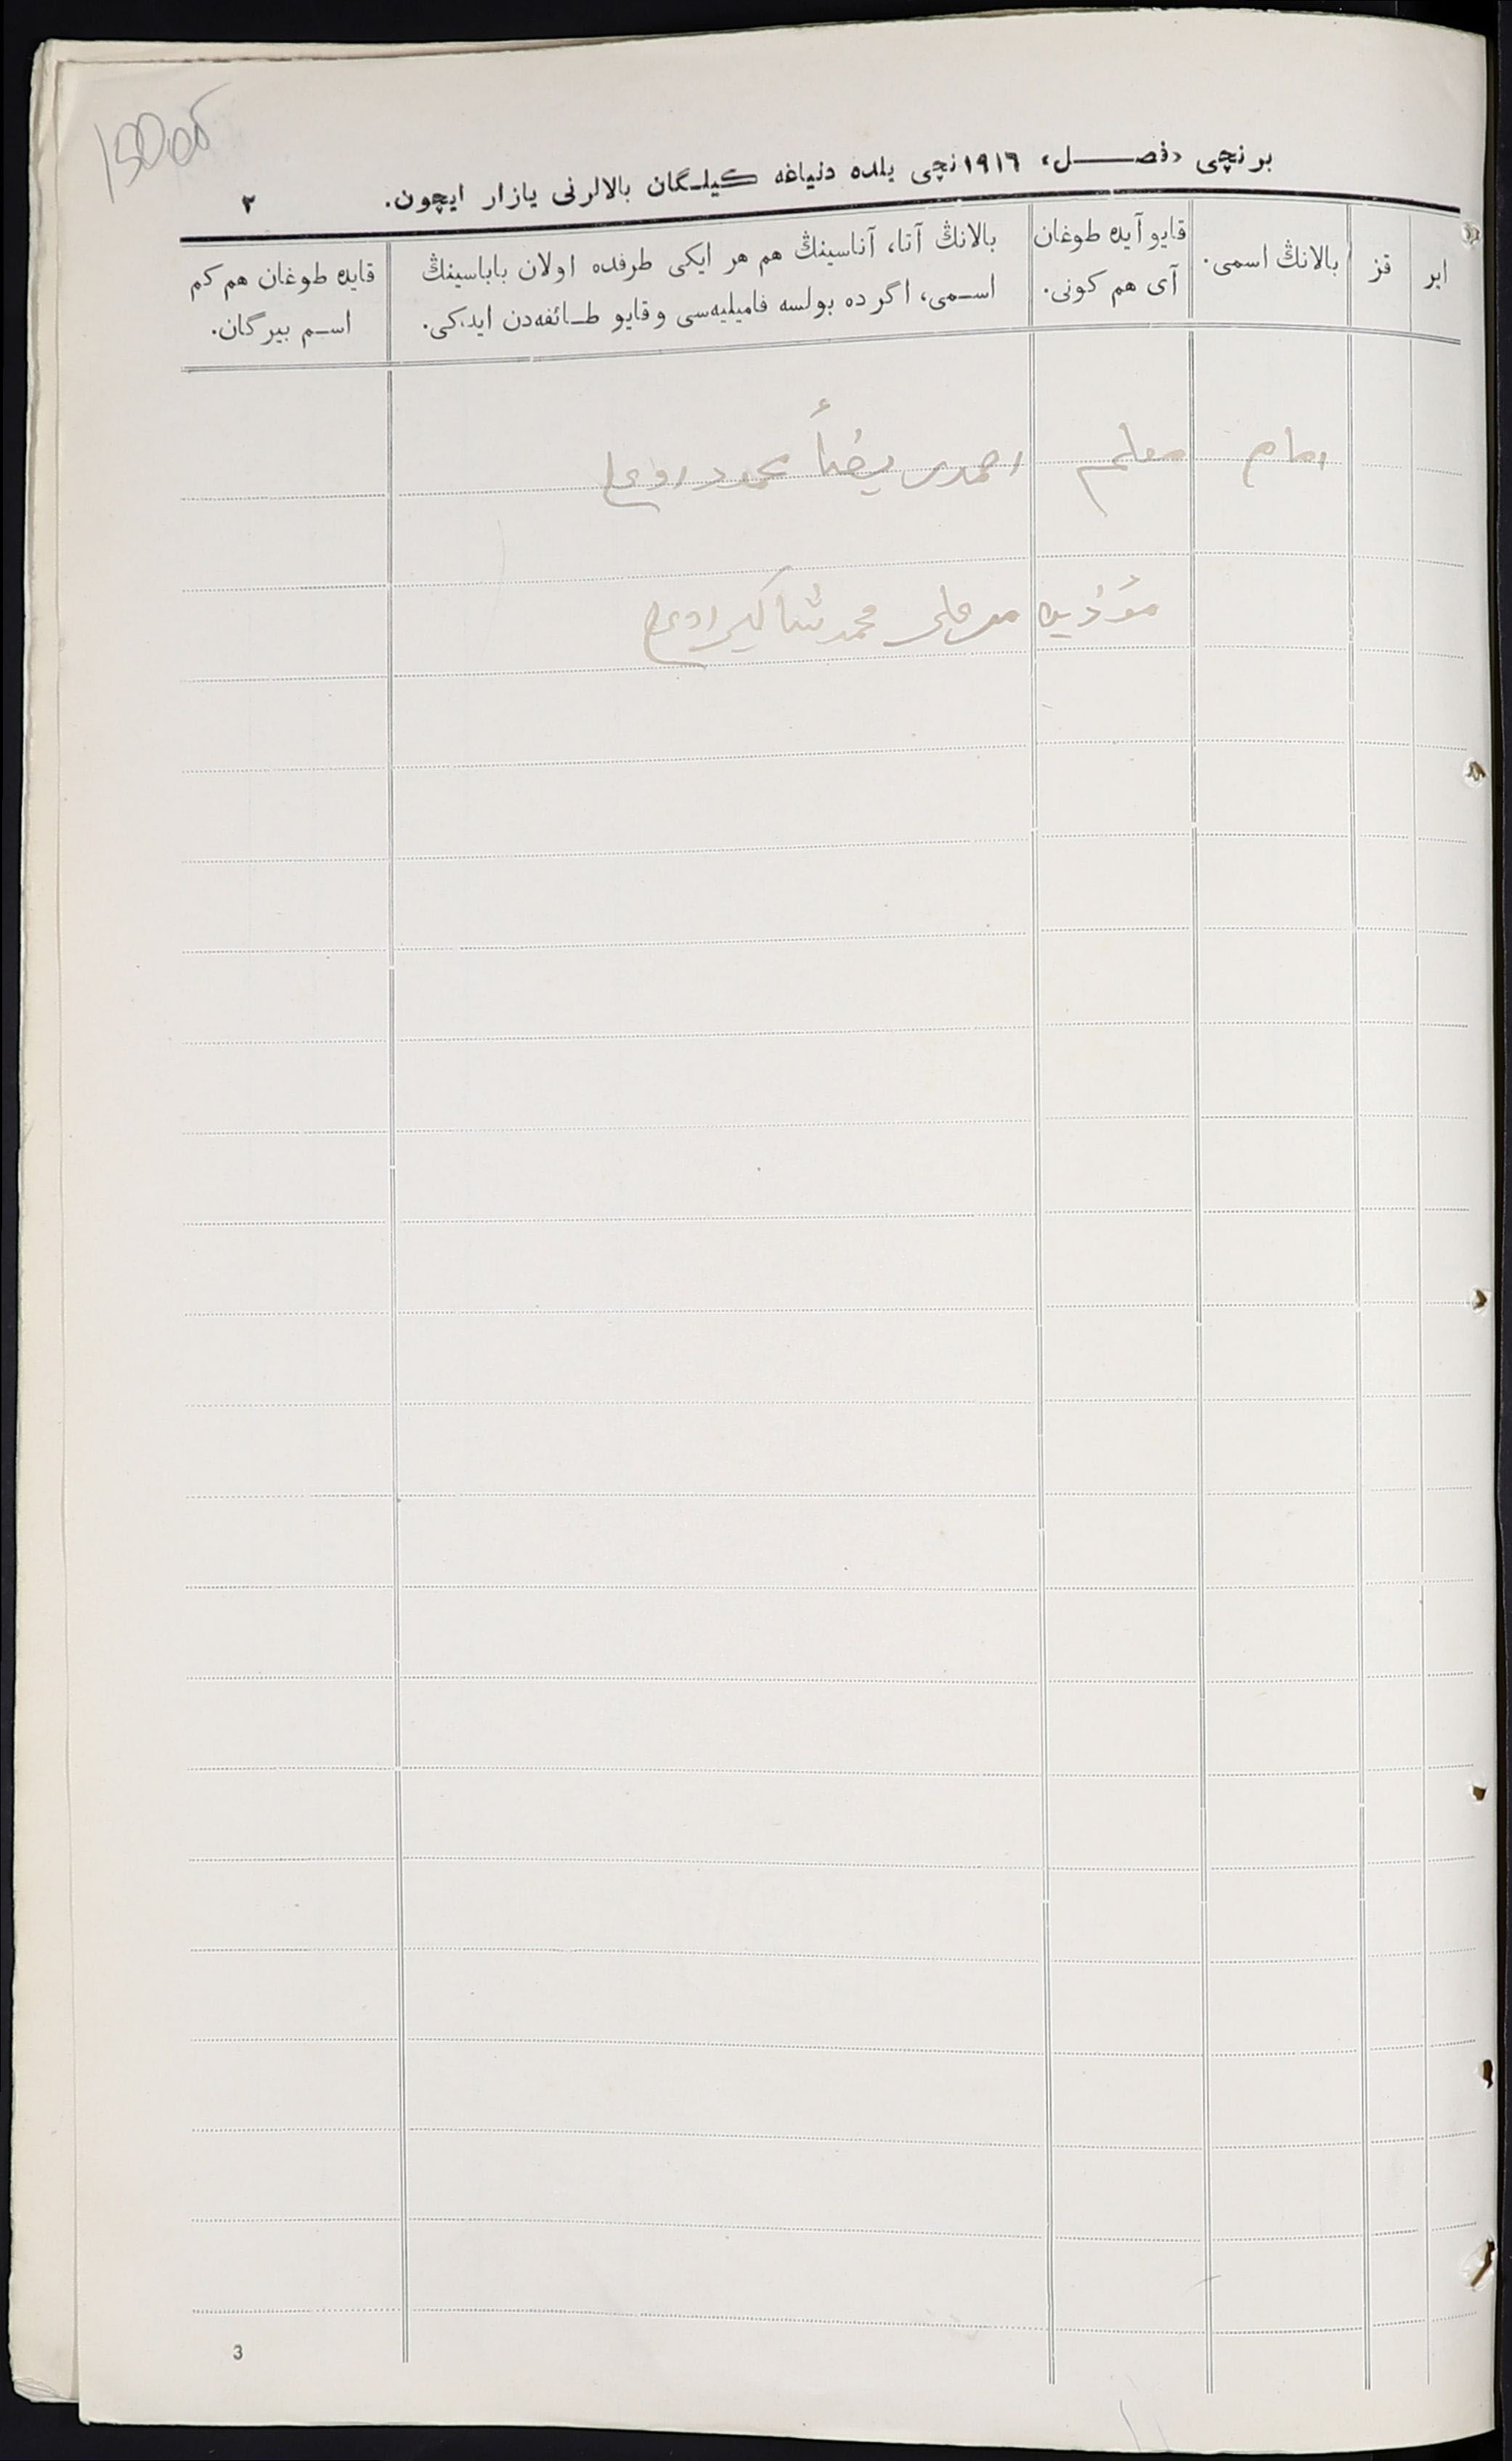 150об
برنچی «فصـــل» ١٩١٦نچی یلده دنیاغه کیلـگان بالالرنی یازار ایچون.
٢
ایر
قز
بالانڭ اسمی.
قایو آیده طوغان
آی هم کونی.
بالانڭ آتا، آناسینڭ هم هر ایکی طرفده اولان باباسینڭ
اسـمی، اگر ده بولسه فامیلیه‌سی و قایو طـائفه‌دن ایدکی.
قایده طوغان هم کم
اسـم بیرگان.
امام معلم احمد محمد
مؤذن محمد
3